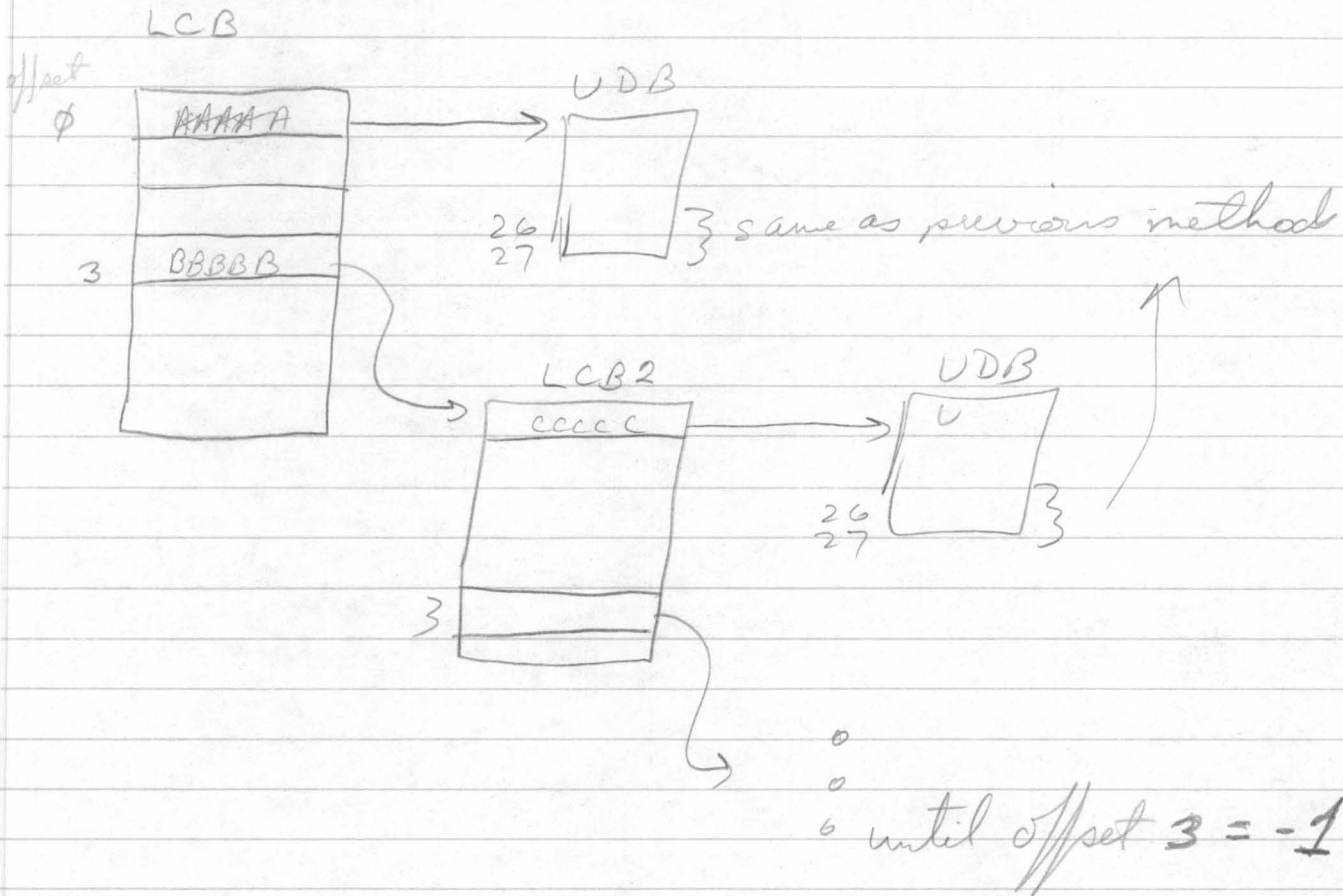 LCB
offset
UDB
φ AAAAA
26
27
same as previous method
3 BBBBB
LCB2
UDB
CCCCC
U
26
27
3
until offset 3 = -1